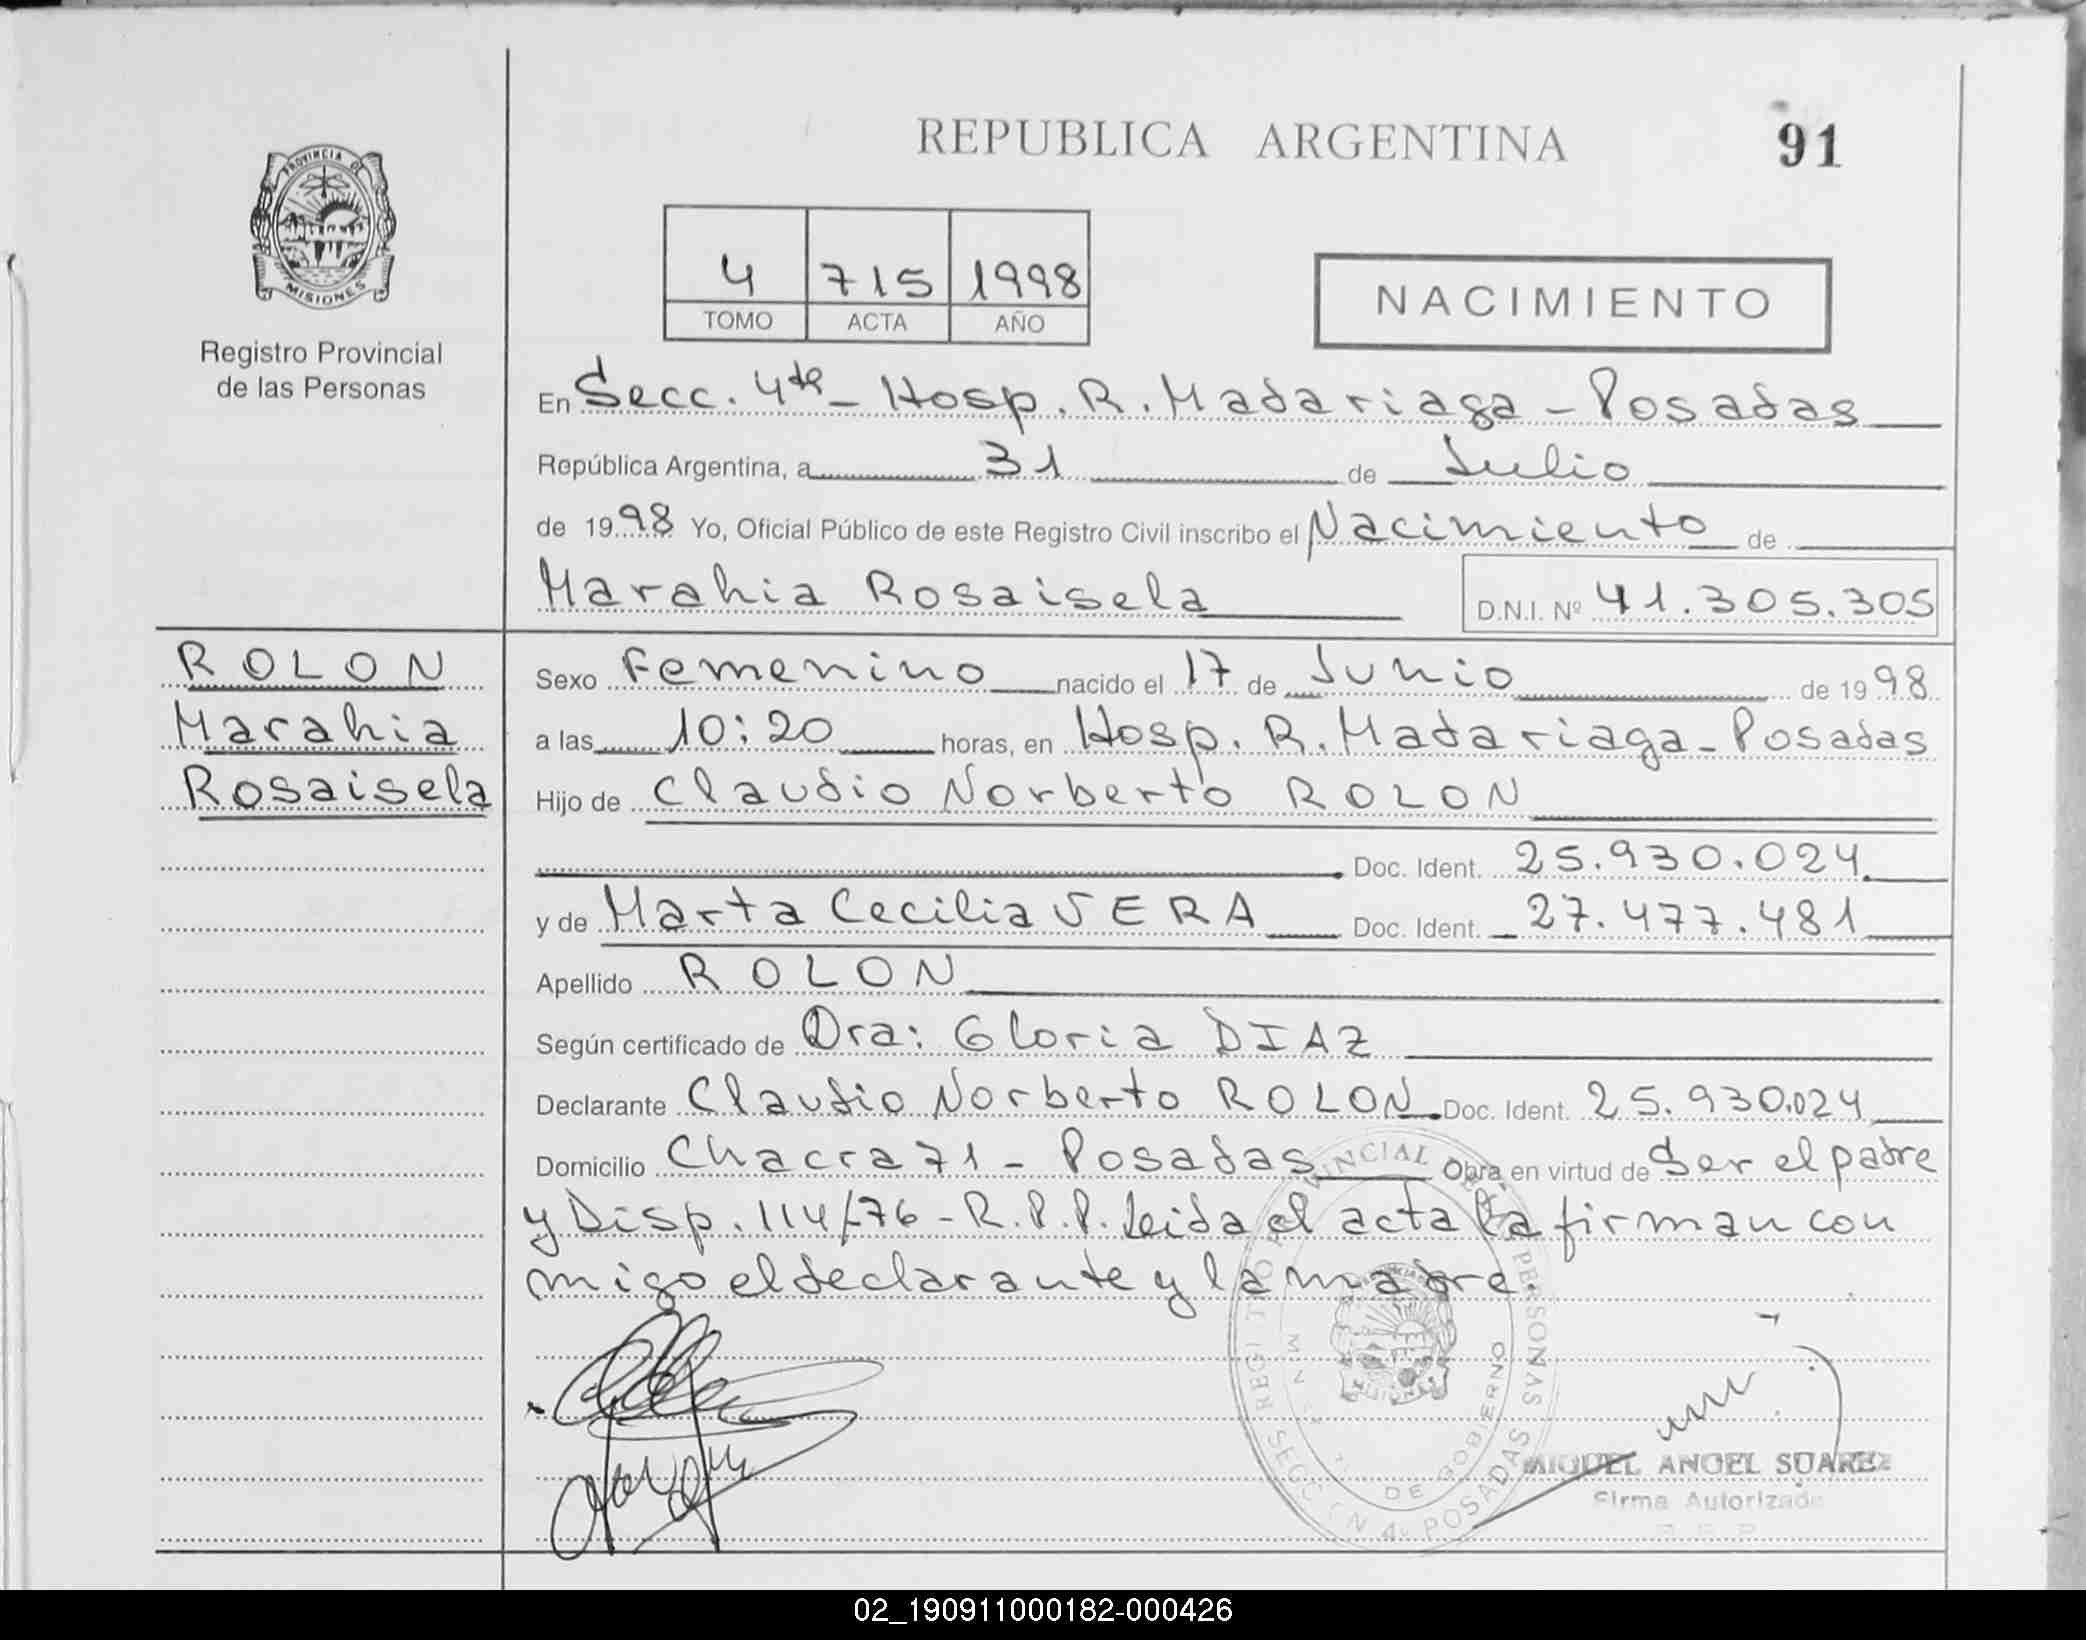 REPUBLICA ARGENTINA
91
PROVINCIA DE
MISIONES
Registro Provincial
de las Personas
4 715 1998
TOMO ACTA AÑO
NACIMIENTO
En Secc. 4ta - Hosp. R. Madariaga - Posadas
República Argentina, a 31 de Julio
de 1998 Yo, Oficial Público de este Registro Civil inscribo el Nacimiento de
Marahia Rosaisela D.N.I. Nº 41.305.305
ROLON
Marahia
Rosaisela
Sexo Femenino nacido el 17 de Junio de 1998
a las 10:20 horas, en Hosp. R. Madariaga - Posadas
Hijo de Claudio Norberto ROLON
Doc. Ident. 25.930.024
y de Marta Cecilia VERA Doc. Ident. 27.477.481
Apellido ROLON
Según certificado de Dra: Gloria DIAZ
Declarante Claudio Norberto ROLON Doc. Ident. 25.930.024
Domicilio Chacra 71 - Posadas Obra en virtud de Ser el padre
y Disp. 114/76 - R.P.P. Leida el acta la firman con
migo el declarante y la madre.
DE GOBIERNO
PERSONAS
POSADAS
MIGUEL ANGEL SUAREZ
Firma Autorizada
02_190911000182-000426